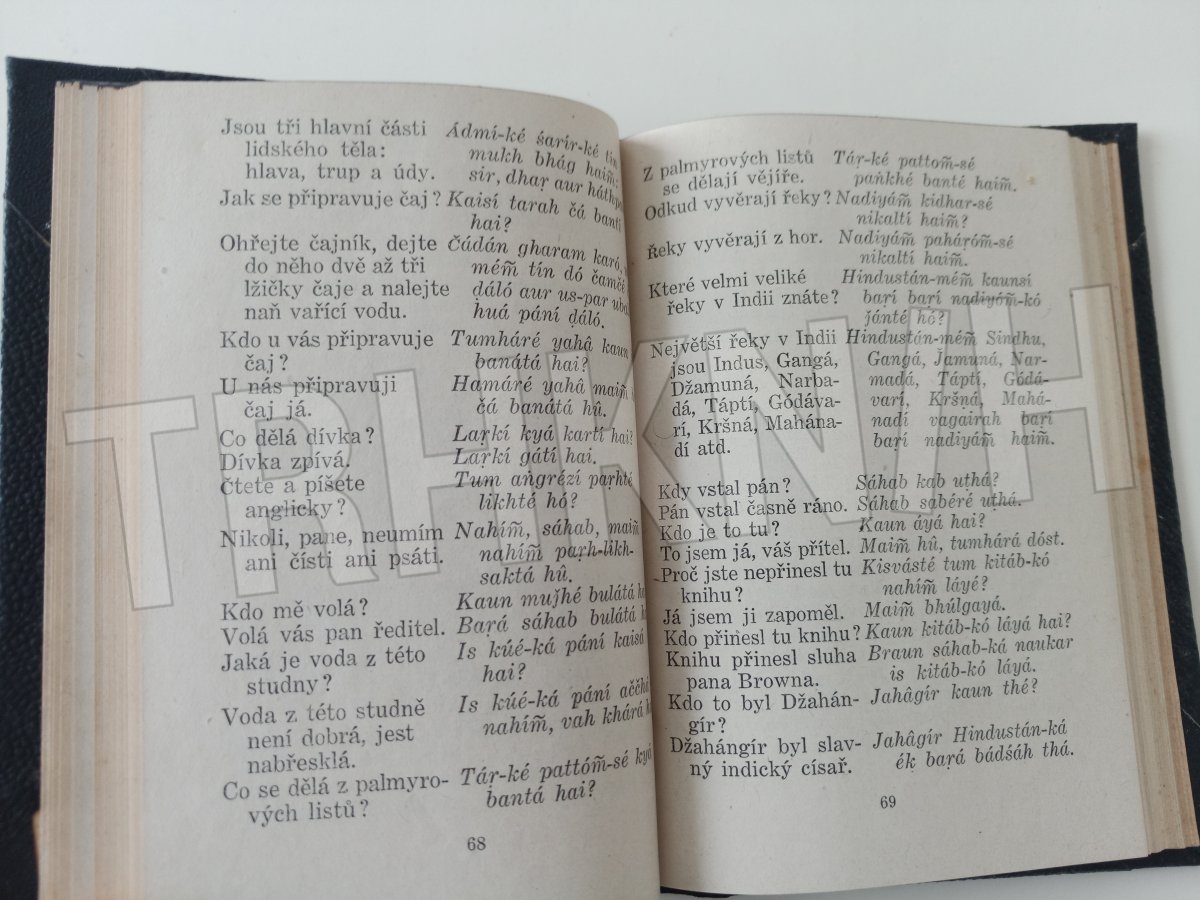 Jsou tři hlavní části
lidského těla:
hlava, trup a údy.
Jak se připravuje čaj?
Ohřejte čajník, dejte
do něho dvě až tři
lžičky čaje a nalejte
naň vařící vodu.
Kdo u vás připravuje
čaj?
U nás připravuji
čaj já.
Co dělá dívka?
Dívka zpívá.
čtete a píšete
anglicky?
Nikoli, pane, neumím
ani čísti ani psáti.
Kdo mě volá?
Volá vás pan ředitel.
Jaká je voda z této
studny?
Voda z této studně
není dobrá, jest
nabřesklá.
Co se dělá z palmyro-
vých listů?
Ádmí-ké śarír-ké tín
mukh bhág haim̃:
sir, dhar aur
Kaisí tarah čá
hai?
Čádán gharam karó,
mém̃ tín dó
ḍáló aur us-par
huá pání ḍáló.
Tumháré yahâ kaun
banátá hai?
Hamáré yahâ maim̃
čá banátá hû.
Laṛkí kyá kartí hai?
Laṛkí gátí hai.
Tum aṅgrézí paṛhté
likhté hó?
Nahím̃, sáhab, maim̃
nahím̃ paṛh-likh-
saktá hû.
Kaun mujhé bulátá
Baṛá sáhab bulátá
Is kúé-ká pání kaisá
hai?
Is kúé-ká pání aččhá
nahím̃, vah khárá
Táṛ-ké pattóm̃-sé kyá
bantá hai?
68
Z palmyrových listů
se dělají vějíře.
Odkud vyvěrají řeky?
Řeky vyvěrají z hor.
Které velmi veliké
řeky v Indii znáte?
Největší řeky v Indii
jsou Indus, Gangá,
Džamuná, Narba-
dá, Táptí, Gódáva-
rí, Kršná, Mahána-
dí atd.
Kdy vstal pán?
Pán vstal časně ráno.
Kdo je to tu?
To jsem já, váš přítel.
Proč jste nepřinesl tu
knihu?
Já jsem ji zapoměl.
Kdo přinesl tu knihu?
Knihu přinesl sluha
pana Browna.
Kdo to byl Džahán-
gír?
Džahángír byl slav-
ný indický císař.
Táṛ-ké pattom̃-sé
paṅkhé banté haim̃.
Nadiyám̃ kidhar-sé
nikaltí haim̃?
Nadiyám̃ paháróm̃-sé
nikaltí haim̃.
Hindustán-mém̃ kaunsí
baṛí baṛí nadiyóm̃-kó
jánté hó?
Hindustán-mém̃ Sindhu,
Gangá, Jamuná, Nar-
madá, Táptí, Gódá-
varí, Kršṇá, Mahá-
nadí vagairah baṛí
baṛí nadiyám̃ haim̃.
Sáhab kab uthá?
Sáhab sabéré uthá.
Kaun áyá hai?
Maim̃ hû, tumhárá dóst.
Kisvásté tum kitáb-kó
nahím̃ láyé?
Maim̃ bhúlgayá.
Kaun kitáb-kó láyá hai?
Braun sáhab-ká naukar
is kitáb-kó láyá.
Jahâgír kaun thé?
Jahâgír Hindustán-ká
ék baṛá bádśáh thá.
69
TRHKNIH